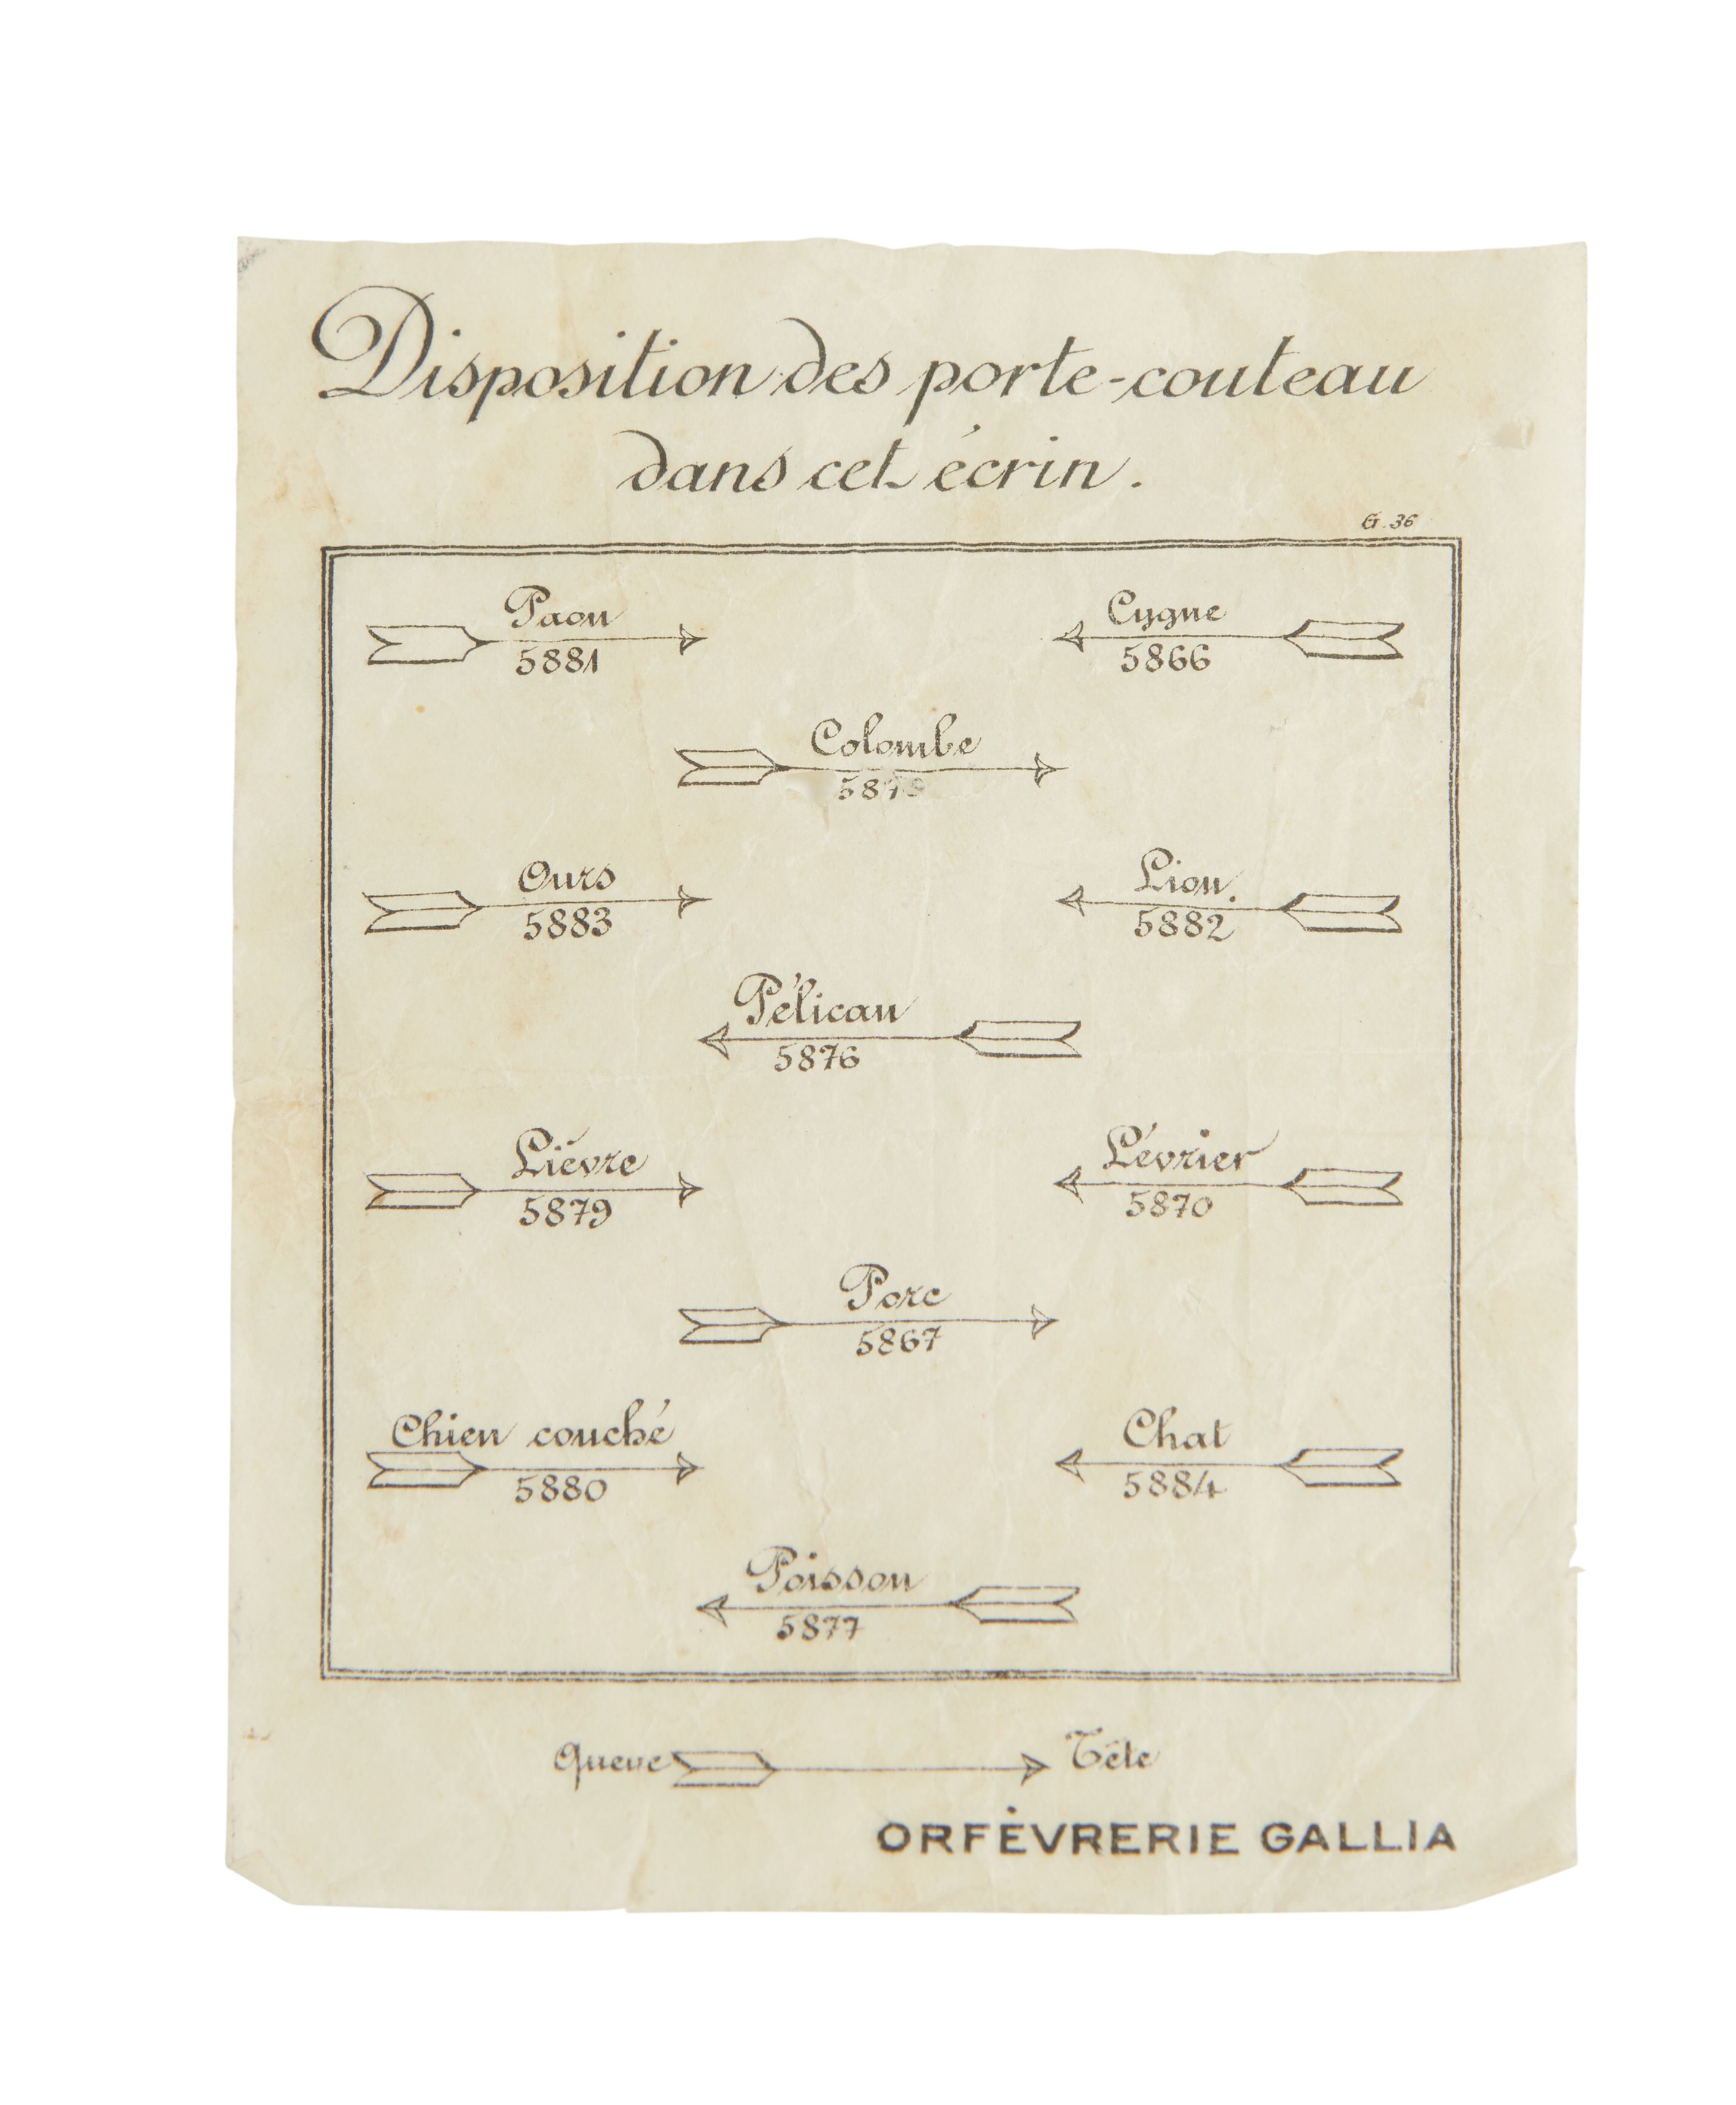 Disposition des porte-couteau
dans cet écrin.
G. 36
Paon
5881
Cygne
5866
Colombe
Ours
5883
Lion.
5882
Pélican
5876
Lièvre
5879
Lévrier
5870
Porc
5867
Chien couché
5880
Chat
5884
Poisson
5877
Queue Tête
ORFÈVRERIE GALLIA